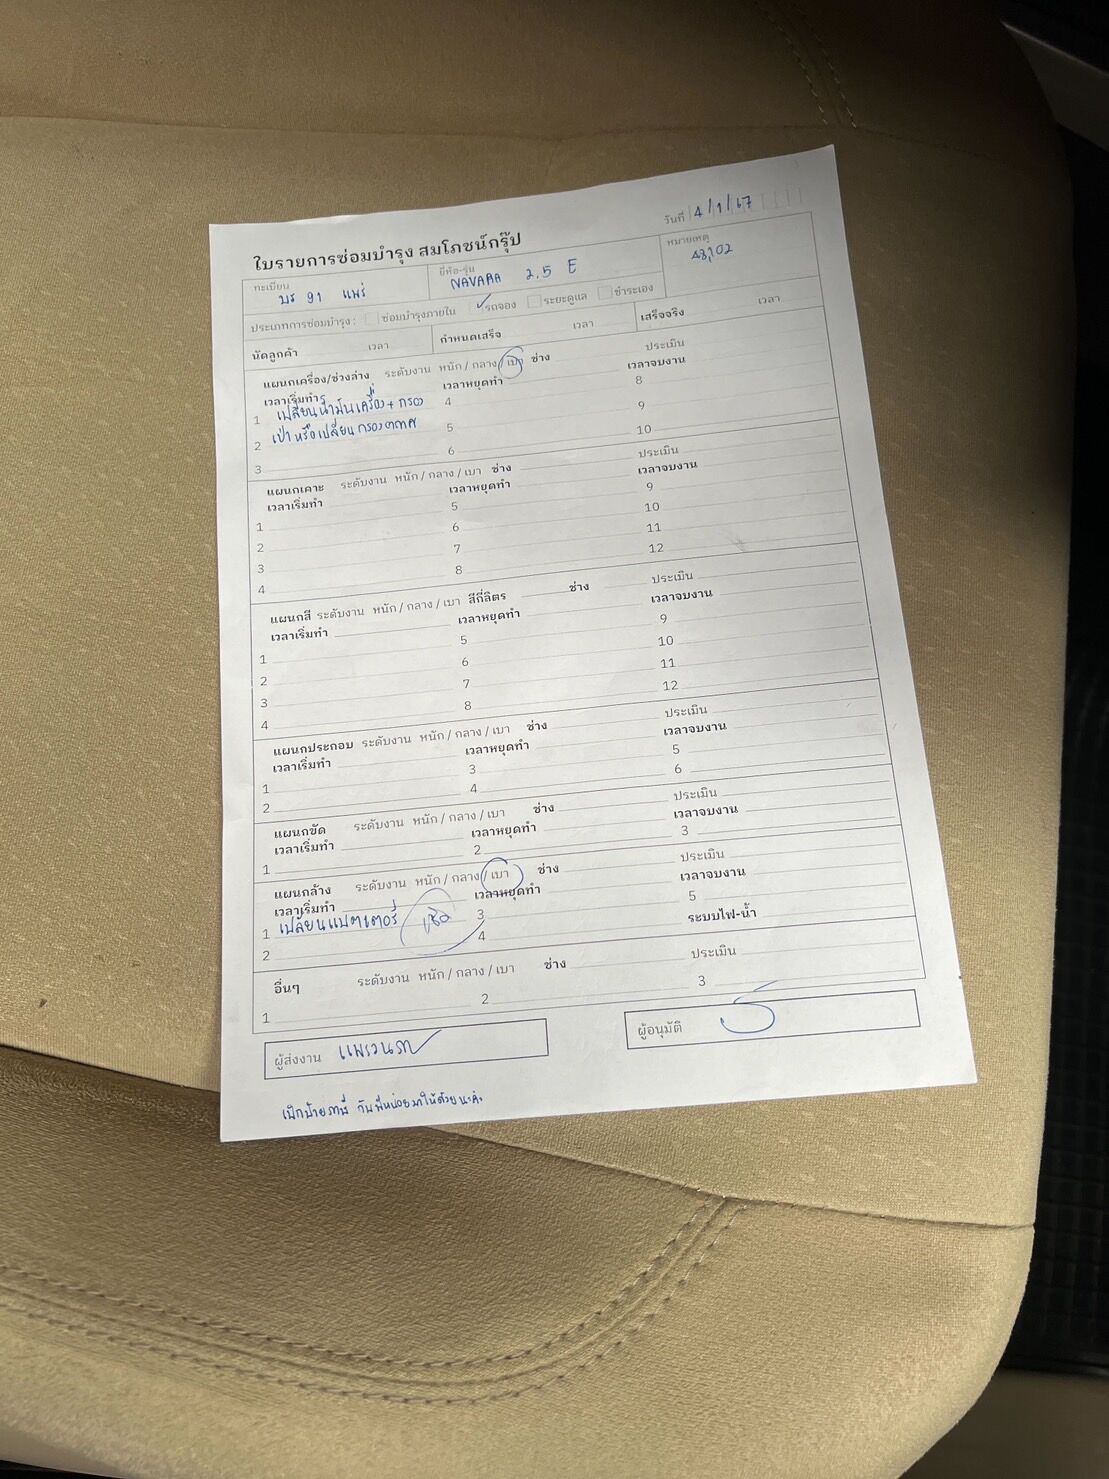 วันที่ 4/1/67
ใบรายการซ่อมบำรุง สมโภชน์กรุ๊ป
ทะเบียน บร 91 แพร่ ยี่ห้อ-รุ่น NAVARA 2.5 E หมายเหตุ 48,102
ประเภทการซ่อมบำรุง : ซ่อมบำรุงภายใน ✓ รถจอง ระยะดูแล ชำระเอง
นัดลูกค้า เวลา กำหนดเสร็จ เวลา เสร็จจริง เวลา
แผนกเครื่อง/ช่วงล่าง ระดับงาน หนัก / กลาง / เบา ช่าง ประเมิน
เวลาเริ่มทำ เวลาหยุดทำ เวลาจบงาน
1 เปลี่ยนน้ำมันเครื่อง + กรอง 4 8
2 เป่าหรือเปลี่ยนกรองอากาศ 5 9
3 6 10
แผนกเคาะ ระดับงาน หนัก / กลาง / เบา ช่าง ประเมิน
เวลาเริ่มทำ เวลาหยุดทำ เวลาจบงาน
1 5 9
2 6 10
3 7 11
4 8 12
แผนกสี ระดับงาน หนัก / กลาง / เบา สีกี่ลิตร ช่าง ประเมิน
เวลาเริ่มทำ เวลาหยุดทำ เวลาจบงาน
1 5 9
2 6 10
3 7 11
4 8 12
แผนกประกอบ ระดับงาน หนัก / กลาง / เบา ช่าง ประเมิน
เวลาเริ่มทำ เวลาหยุดทำ เวลาจบงาน
1 3 5
2 4 6
แผนกขัด ระดับงาน หนัก / กลาง / เบา ช่าง ประเมิน
เวลาเริ่มทำ เวลาหยุดทำ เวลาจบงาน
1 2 3
แผนกล้าง ระดับงาน หนัก / กลาง / เบา ช่าง ประเมิน
เวลาเริ่มทำ เวลาหยุดทำ เวลาจบงาน
1 เปลี่ยนแบตเตอรี่ 3 5
2 4 ระบบไฟ-น้ำ
อื่นๆ ระดับงาน หนัก / กลาง / เบา ช่าง ประเมิน
1 2 3
ผู้ส่งงาน แพรวนภา ผู้อนุมัติ
เบิกป้ายภาษี กับพี่หน่อยมาให้ด้วยนะค่ะ